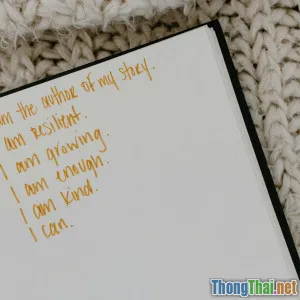 am the author of my story.
am resilient.
I am growing.
I am enough.
I am kind.
I can.
ThongThai.net